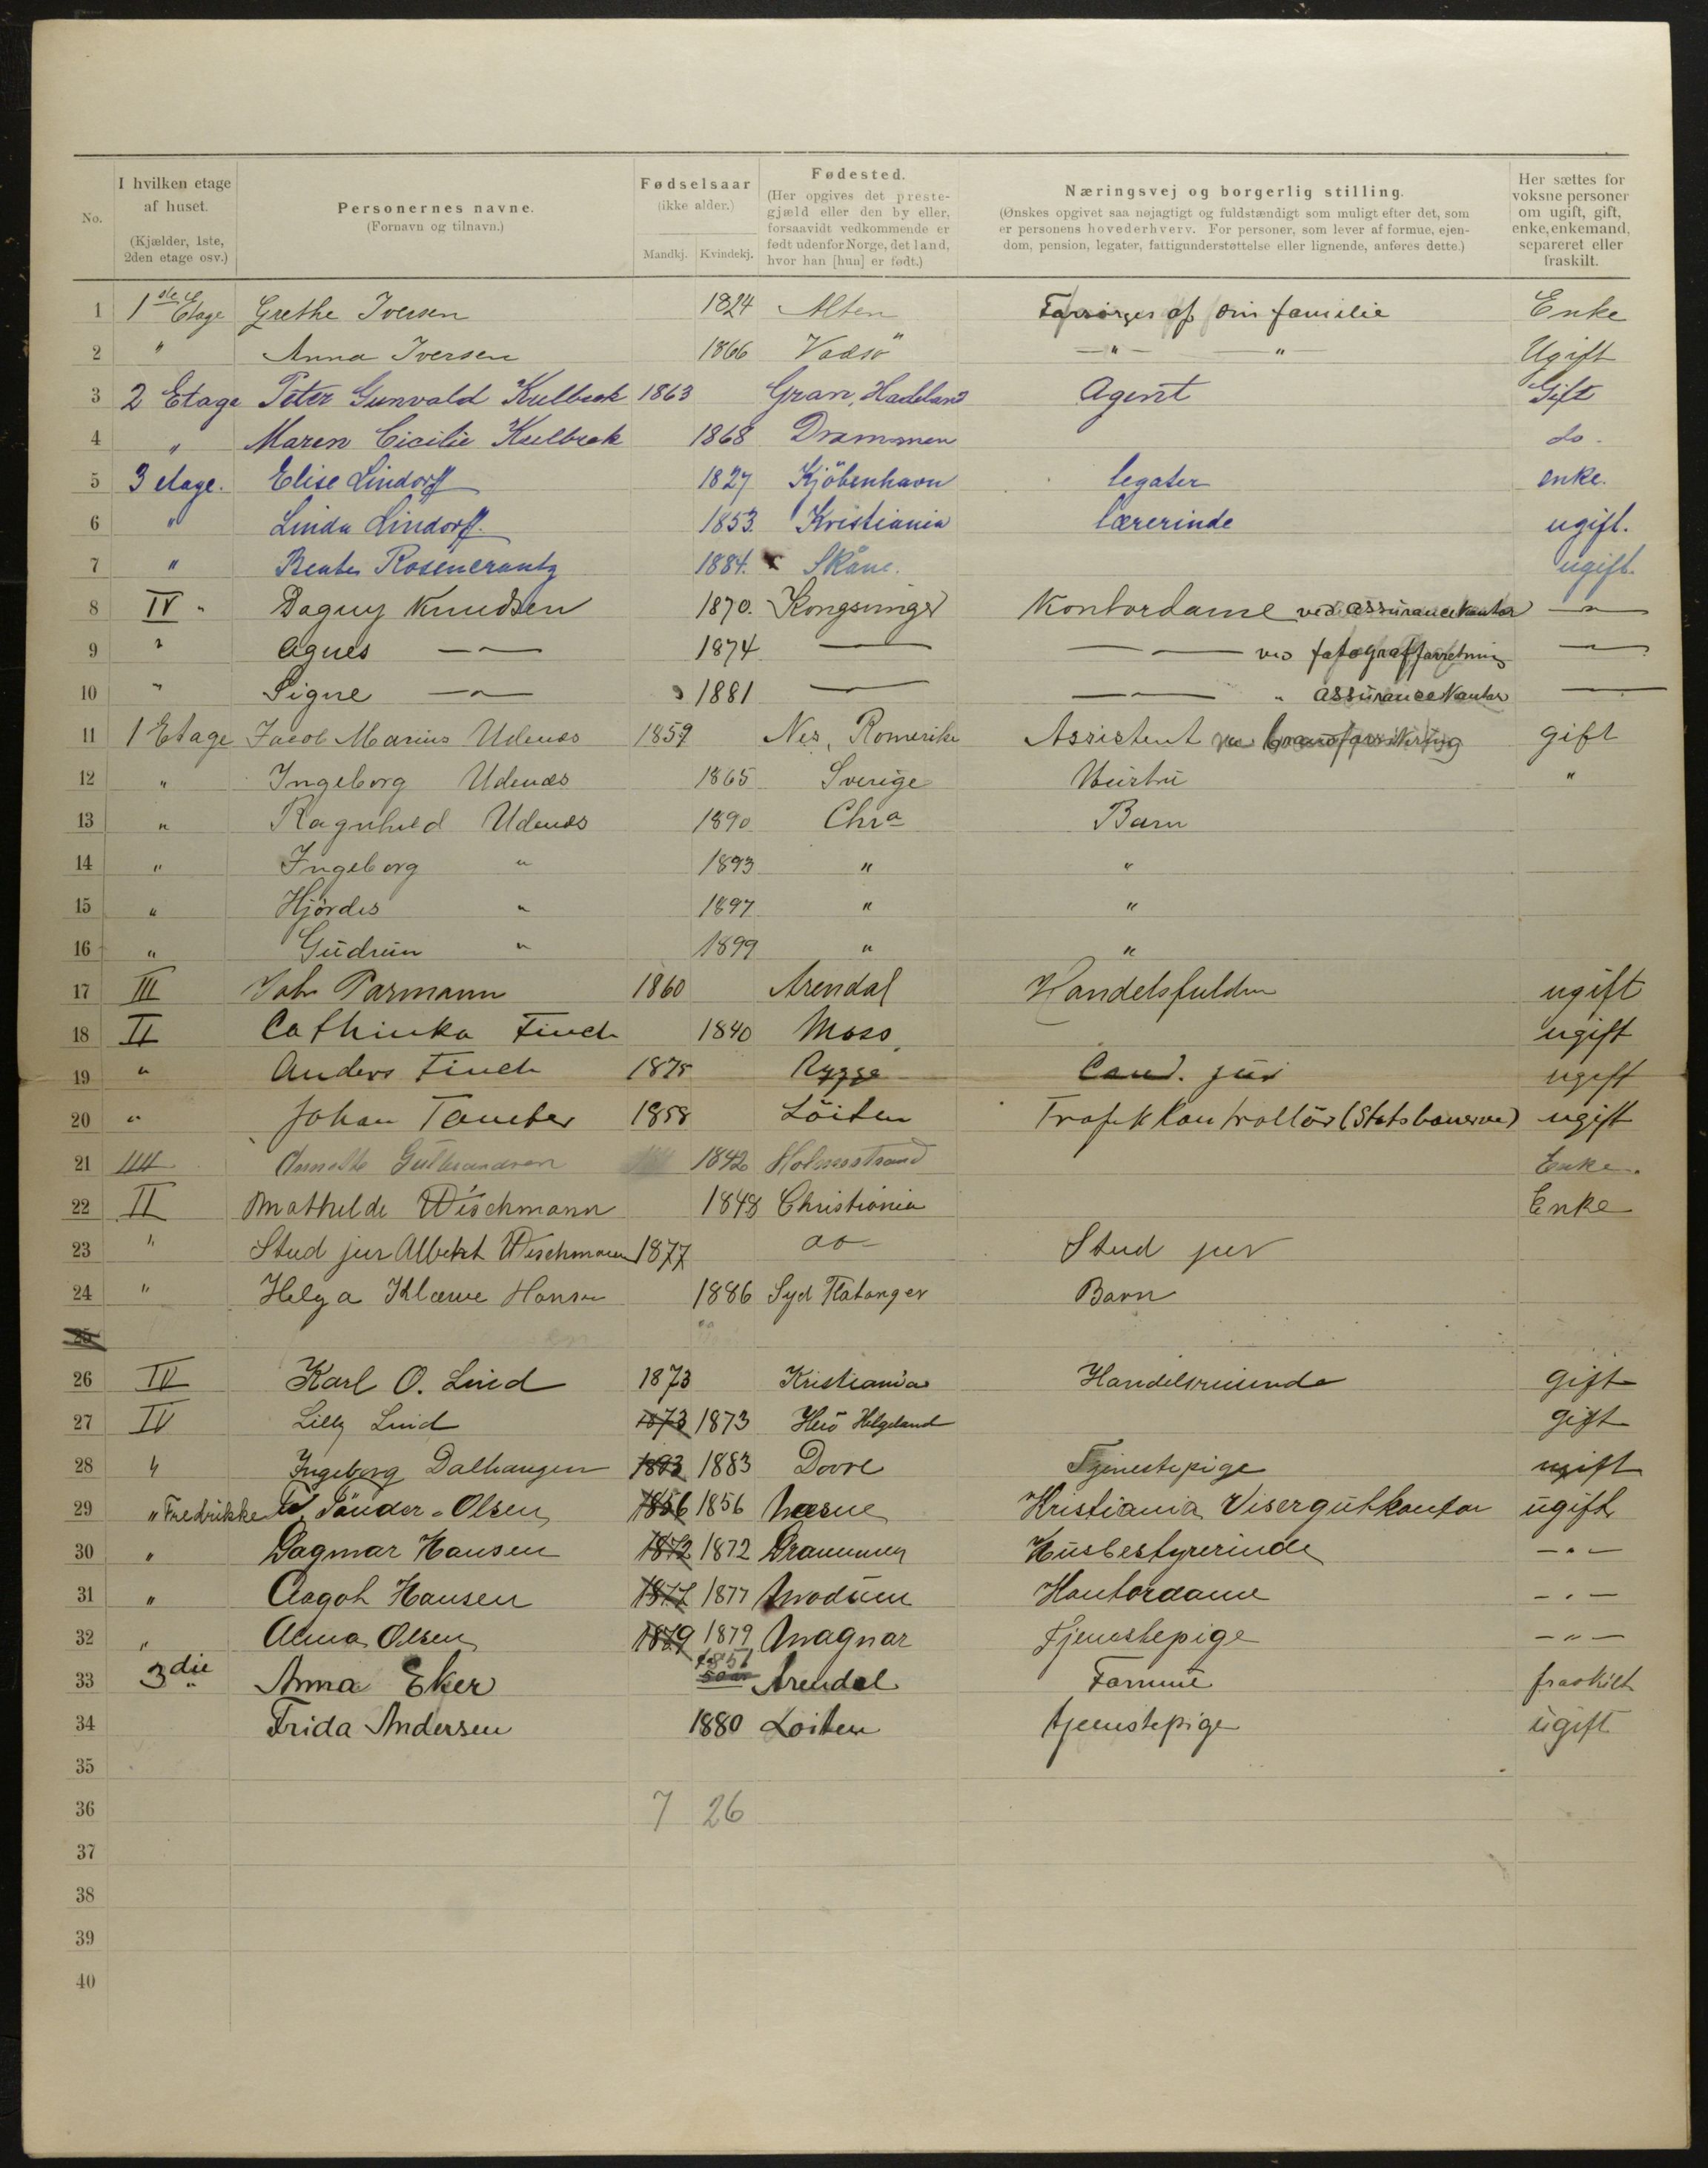 No.
I hvilken etage af huset. (Kjælder, 1ste, 2den etage osv.)
Personernes navne. (Fornavn og tilnavn.)
Fødselsaar (ikke alder.) Mandkj. Kvindekj.
Fødested. (Her opgives det prestegjæld eller den by eller, forsaavidt vedkommende er født udenfor Norge, det land, hvor han [hun] er født.)
Næringsvej og borgerlig stilling. (Ønskes opgivet saa nøjagtigt og fuldstændigt som muligt efter det, som er personens hovederhverv. For personer, som lever af formue, ejendom, pension, legater, fattigunderstøttelse eller lignende, anføres dette.)
Her sættes for voksne personer om ugift, gift, enke, enkemand, separeret eller fraskilt.
1 1ste Etage Grethe Iversen 1824 Alten Forsørges af sin familie Enke
2 " Anna Iversen 1866 Vadsö —"— —"— Ugift
3 2 Etage Peter Gunvald Kulbrek 1863 Gran, Hadeland Agent Gift
4 " Maren Cicilie Kulbrek 1868 Drammen do.
5 3 etage. Elise Lindorff 1827 Kjöbenhavn legater enke.
6 " Linda Lindorff. 1853. Kristiania lærerinde ugift.
7 " Beate Rosencrantz 1884. Skåne. ugift.
8 IV " Dagny Knudsen 1870. Kongsvinger Kontordame ved assurancekontor —"—
9 " Agnes —"— 1874 —— —— ved fotografforretning ——
10 " Signe —"— 1881 —— —— " assurancekontor ——
11 1 Etage Jacob Marius Udenæs 1859 Nes, Romerike Assistent ve brandforsikring gift
12 " Ingeborg Udenæs 1865 Sverige Hustru "
13 " Ragnhild Udenæs 1890 Chra Barn
14 " Ingeborg " 1893 " "
15 " Hjördis " 1897 " "
16 " Gudrun " 1899 " "
17 III Joh. Parmann 1860 Arendal Handelsfuldm ugift
18 II Cathinka Finch 1840 Moss ugift
19 " Anders Finch 1875 Rygge Cand. jur ugift
20 " Johan 1858 Löiten Trafikkontrollör (Statsbanerne) ugift
21 IIII Gulbrandsen 1842 Holmestrand Enke.
22 II Mathilde Wischmann 1848 Christiania Enke
23 " Stud jur Albert Wischmann 1877 do Stud jur
24 " Helga Klæwe Hansen 1886 Syd Flatanger Barn
25
26 IV Karl O. Lind 1873 Kristiania Handelsreisende gift
27 IV Lilly Lind 1873 1873 Herö Helgeland gift
28 " Ingeborg Dalhaugen 1883 1883 Dovre Tjenestepige ugift
29 " Fredrikke Tönder-Olsen 1856 1856 Næsne Kristiania Visergutkontor ugift
30 " Dagmar Hansen 1872 1872 Drammen Husbestyrerinde —"—
31 " Aagot Hansen 1877 1877 Modum Kontordame —"—
32 " Alma Olsen 1879 1879 Magnar Tjenestepige —"—
33 3die " Anna Eker 1851 50 aar Arendal Formue fraskilt
34 Frida Andersen 1880 Loiten tjenestepige ugift
35
36 7 26
37
38
39
40